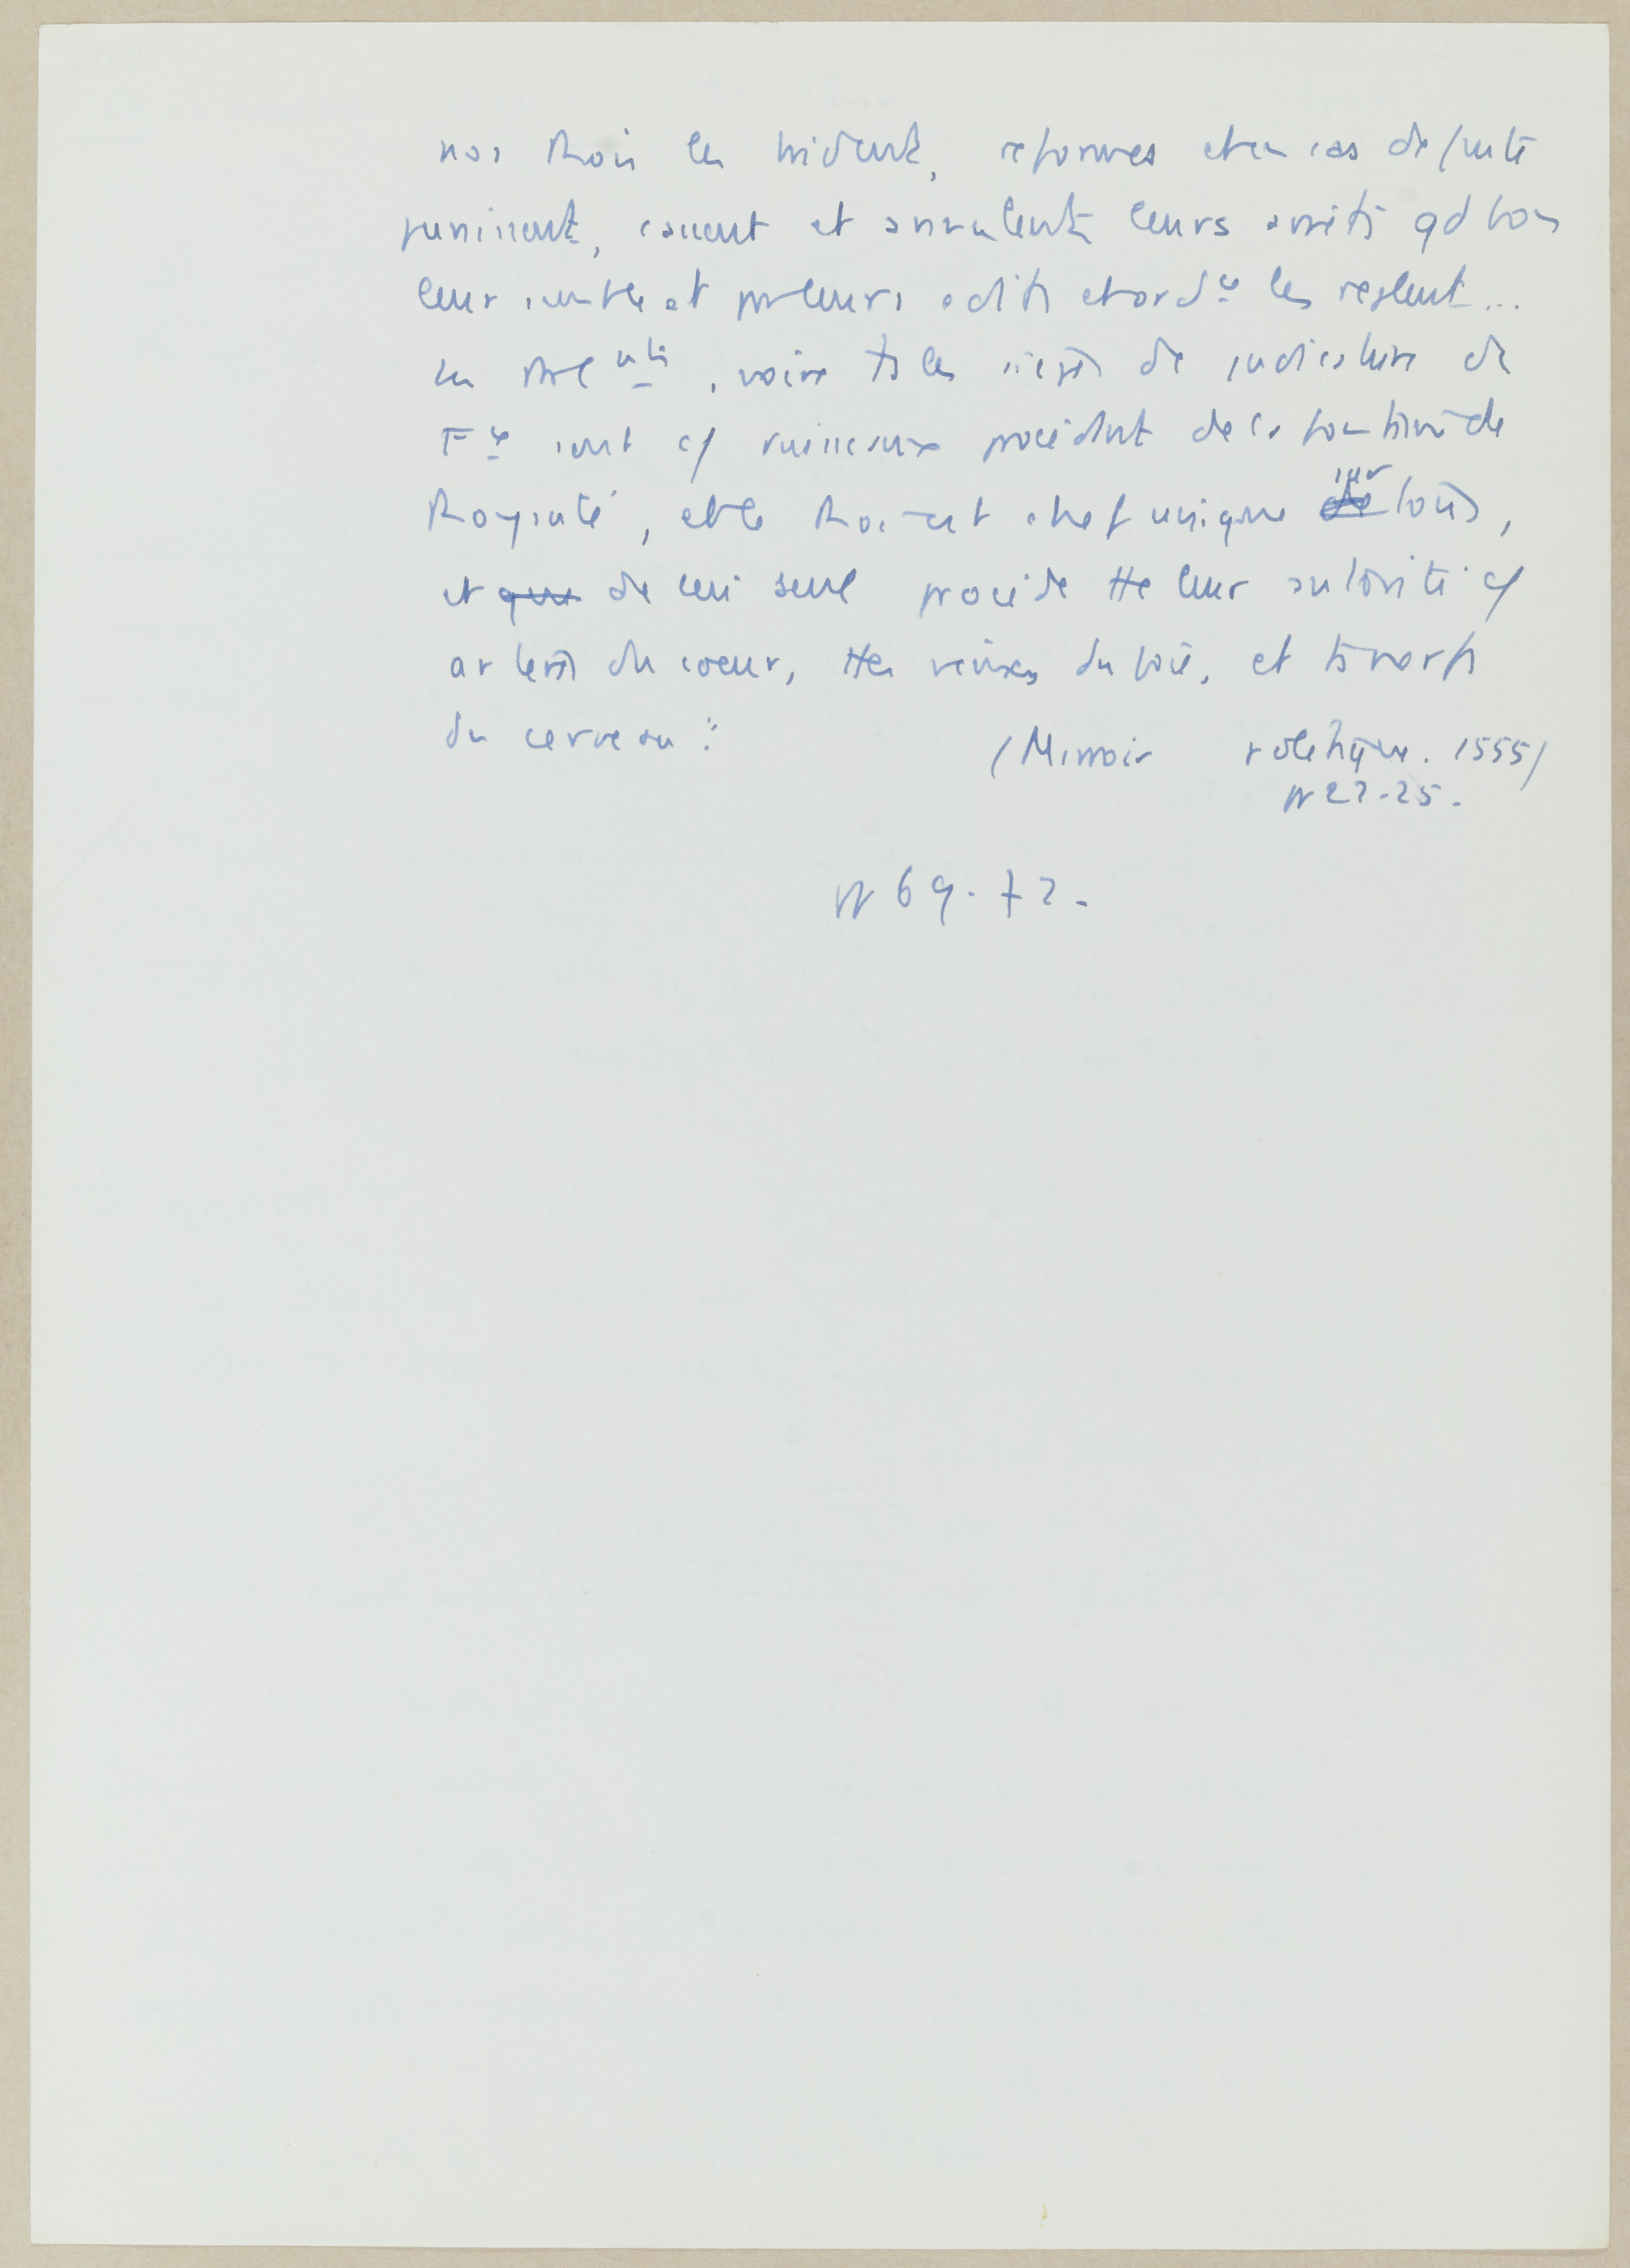 nos Rois les brident, reforment et en cas de faute
punissent, cassent et annulent leurs arrêts qd bon
leur semble et par leurs edits et ordces les reglent...
les Parlmts, voire ts les sieges de judicature de
Fce sont c/ ruisseaux procédant de ce fontaine de
Royauté, et le Roi est chef unique sur tous,
et de lui seul procède tte leur autorité c/
arteres du coeur, ttes veines du foie, et ts nerfs
du cerveau".
(Mirroir politique. 1555)
pp 22-25.
pp 69-72.